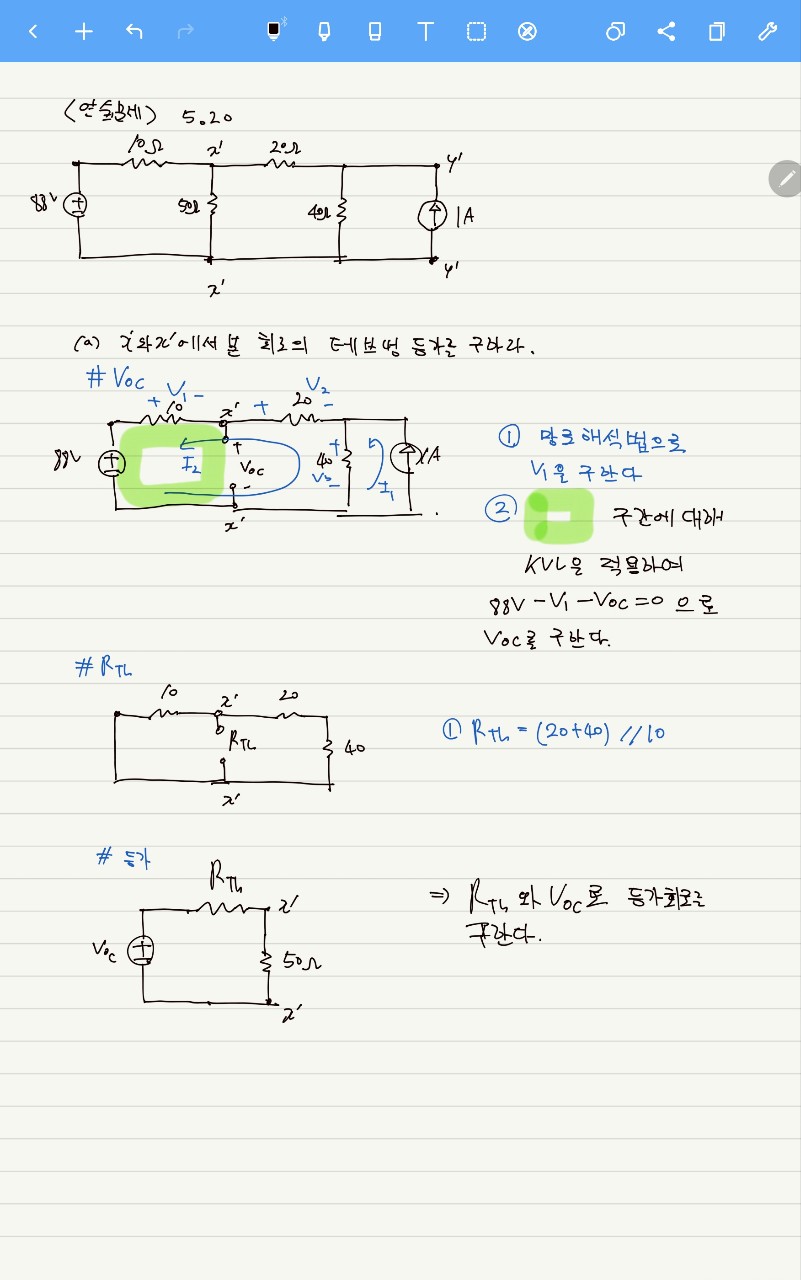 (연습문제) 5.20
10Ω x' 20Ω y'
88V 50Ω 40Ω 1A
x' y'
(a) x'와 x'에서 본 회로의 테브냉 등가를 구하라.
# Voc
+ V1 - + V2 -
10 x' 20
88V I2 + Voc - + 40 V3 - I1 1A
x'
① 망로해석법으로
V1을 구한다
② 구간에 대해
KVL을 적용하여
88V - V1 - Voc = 0 으로
Voc를 구한다.
# RTh
10 x' 20
RTh 40
x'
① RTh = (20+40) // 10
# 등가
RTh x'
Voc 50Ω
x'
⇒ RTh 와 Voc로 등가회로를
구한다.